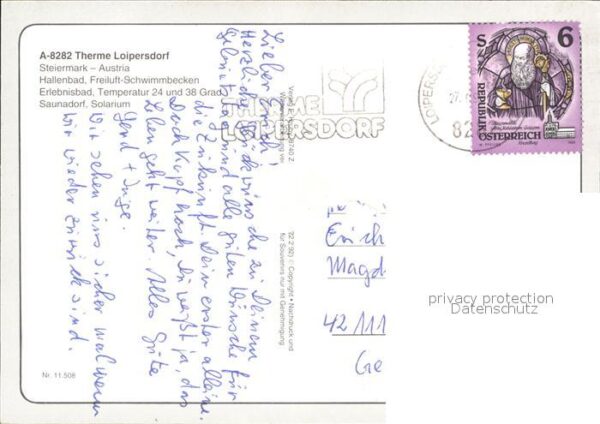 A-8282 Therme Loipersdorf
Steiermark – Austria
Hallenbad, Freiluft-Schwimmbecken
Erlebnisbad, Temperatur 24 und 38 Grad
Saunadorf, Solarium
Lieber Erich!
Herzliche Glückwünsche zu Deinem
Geburtstag und alle guten Wünsche für
die Zukunft. Dein erster alleine.
Doch Kopf hoch, Du weißt ja, das
Leben geht weiter. Alles Gute
Gerd + Inge.
Wir sehen uns sicher mal wenn
wir wieder zurück sind.
Nr. 11.508
© Copyright • Nachdruck und
für Souvenirs nur mit Genehmigung
THERME
LOIPERSDORF
LOIPERS
82
S 6
REPUBLIK
ÖSTERREICH
Erich
Magd
42 111
Ge
privacy protection
Datenschutz